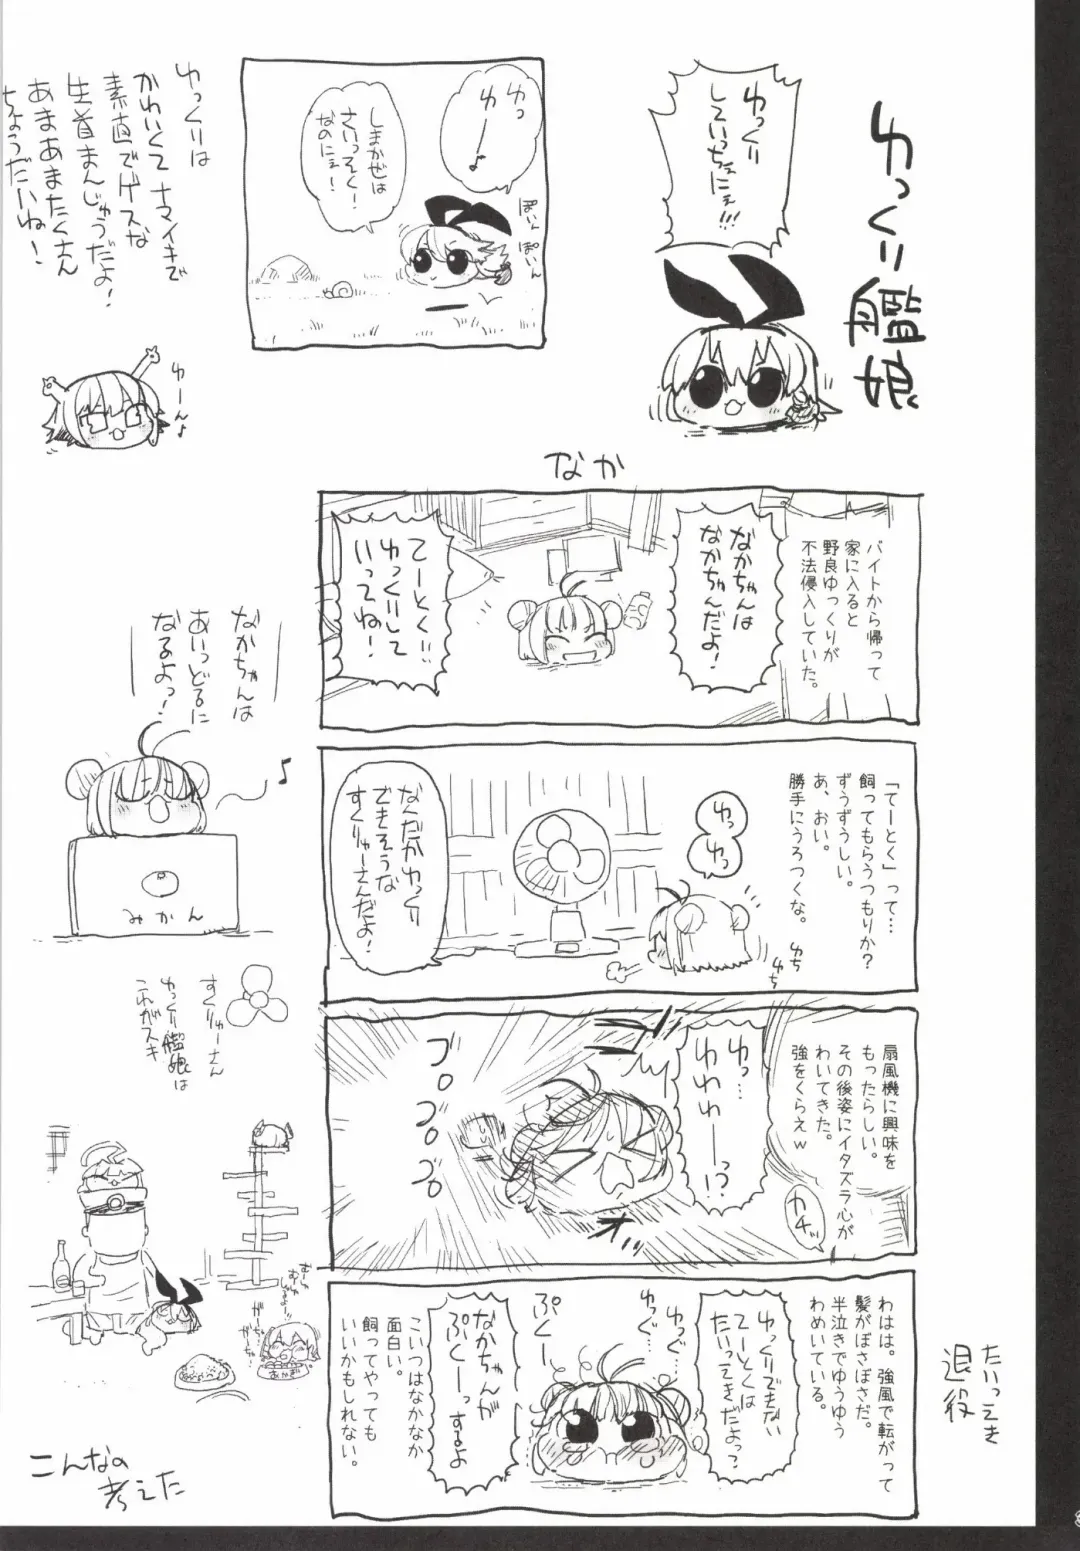 ゆっくり艦娘
ゆっくり
していっちぇにェ!!!
ゆっ
ゆー♪
しまかぜは
さいっそく!
なのにェ!
ぽいん
ぽいん
ゆっくりは
かわいくてナマイキで
素直でゲスな
生首まんじゅうだよ!
あまあまたくさん
ちょうだいね!
ゆーん♪
なか
バイトから帰って
家に入ると
野良ゆっくりが
不法侵入していた。
なかちゃんは
なかちゃんだよ!
てーとく!!
ゆっくりして
いってね!
「てーとく」って…
飼ってもらうつもりか?
ずうずうしい。
あ、おい。
勝手にうろつくな。
ゆっ
ゆっ
ゆち
ゆち
なんだかゆっくり
できそうな
すくりゅーさんだよ!
扇風機に興味を
もったらしい。
その後姿にイタズラ心が
わいてきた。
強をくらえw
カチッ
ゆっ…
ゆわわーっ!?
ゴゴゴゴ
わはは。強風で転がって
髪がぼさぼさだ。
半泣きでゆうゆう
わめいている。
ゆっくりできない
てーとくは
たいってきだよっ?
ゆっぐ…
ゆっぐ…
ぷくー
なかちゃんが
ぷくーっするよ
こいつはなかなか
面白い。
飼ってやっても
いいかもしれない。
たいってき
退役
なかちゃんは
あいっどるに
なるよっ!
♪
みかん
すくりゅーさん
ゆっくり艦娘は
これがスキ
むーしゃ
むーしゃ
しるよ!!
ガちゃ
ガちゃ
あかぎ
こんなの
考えた